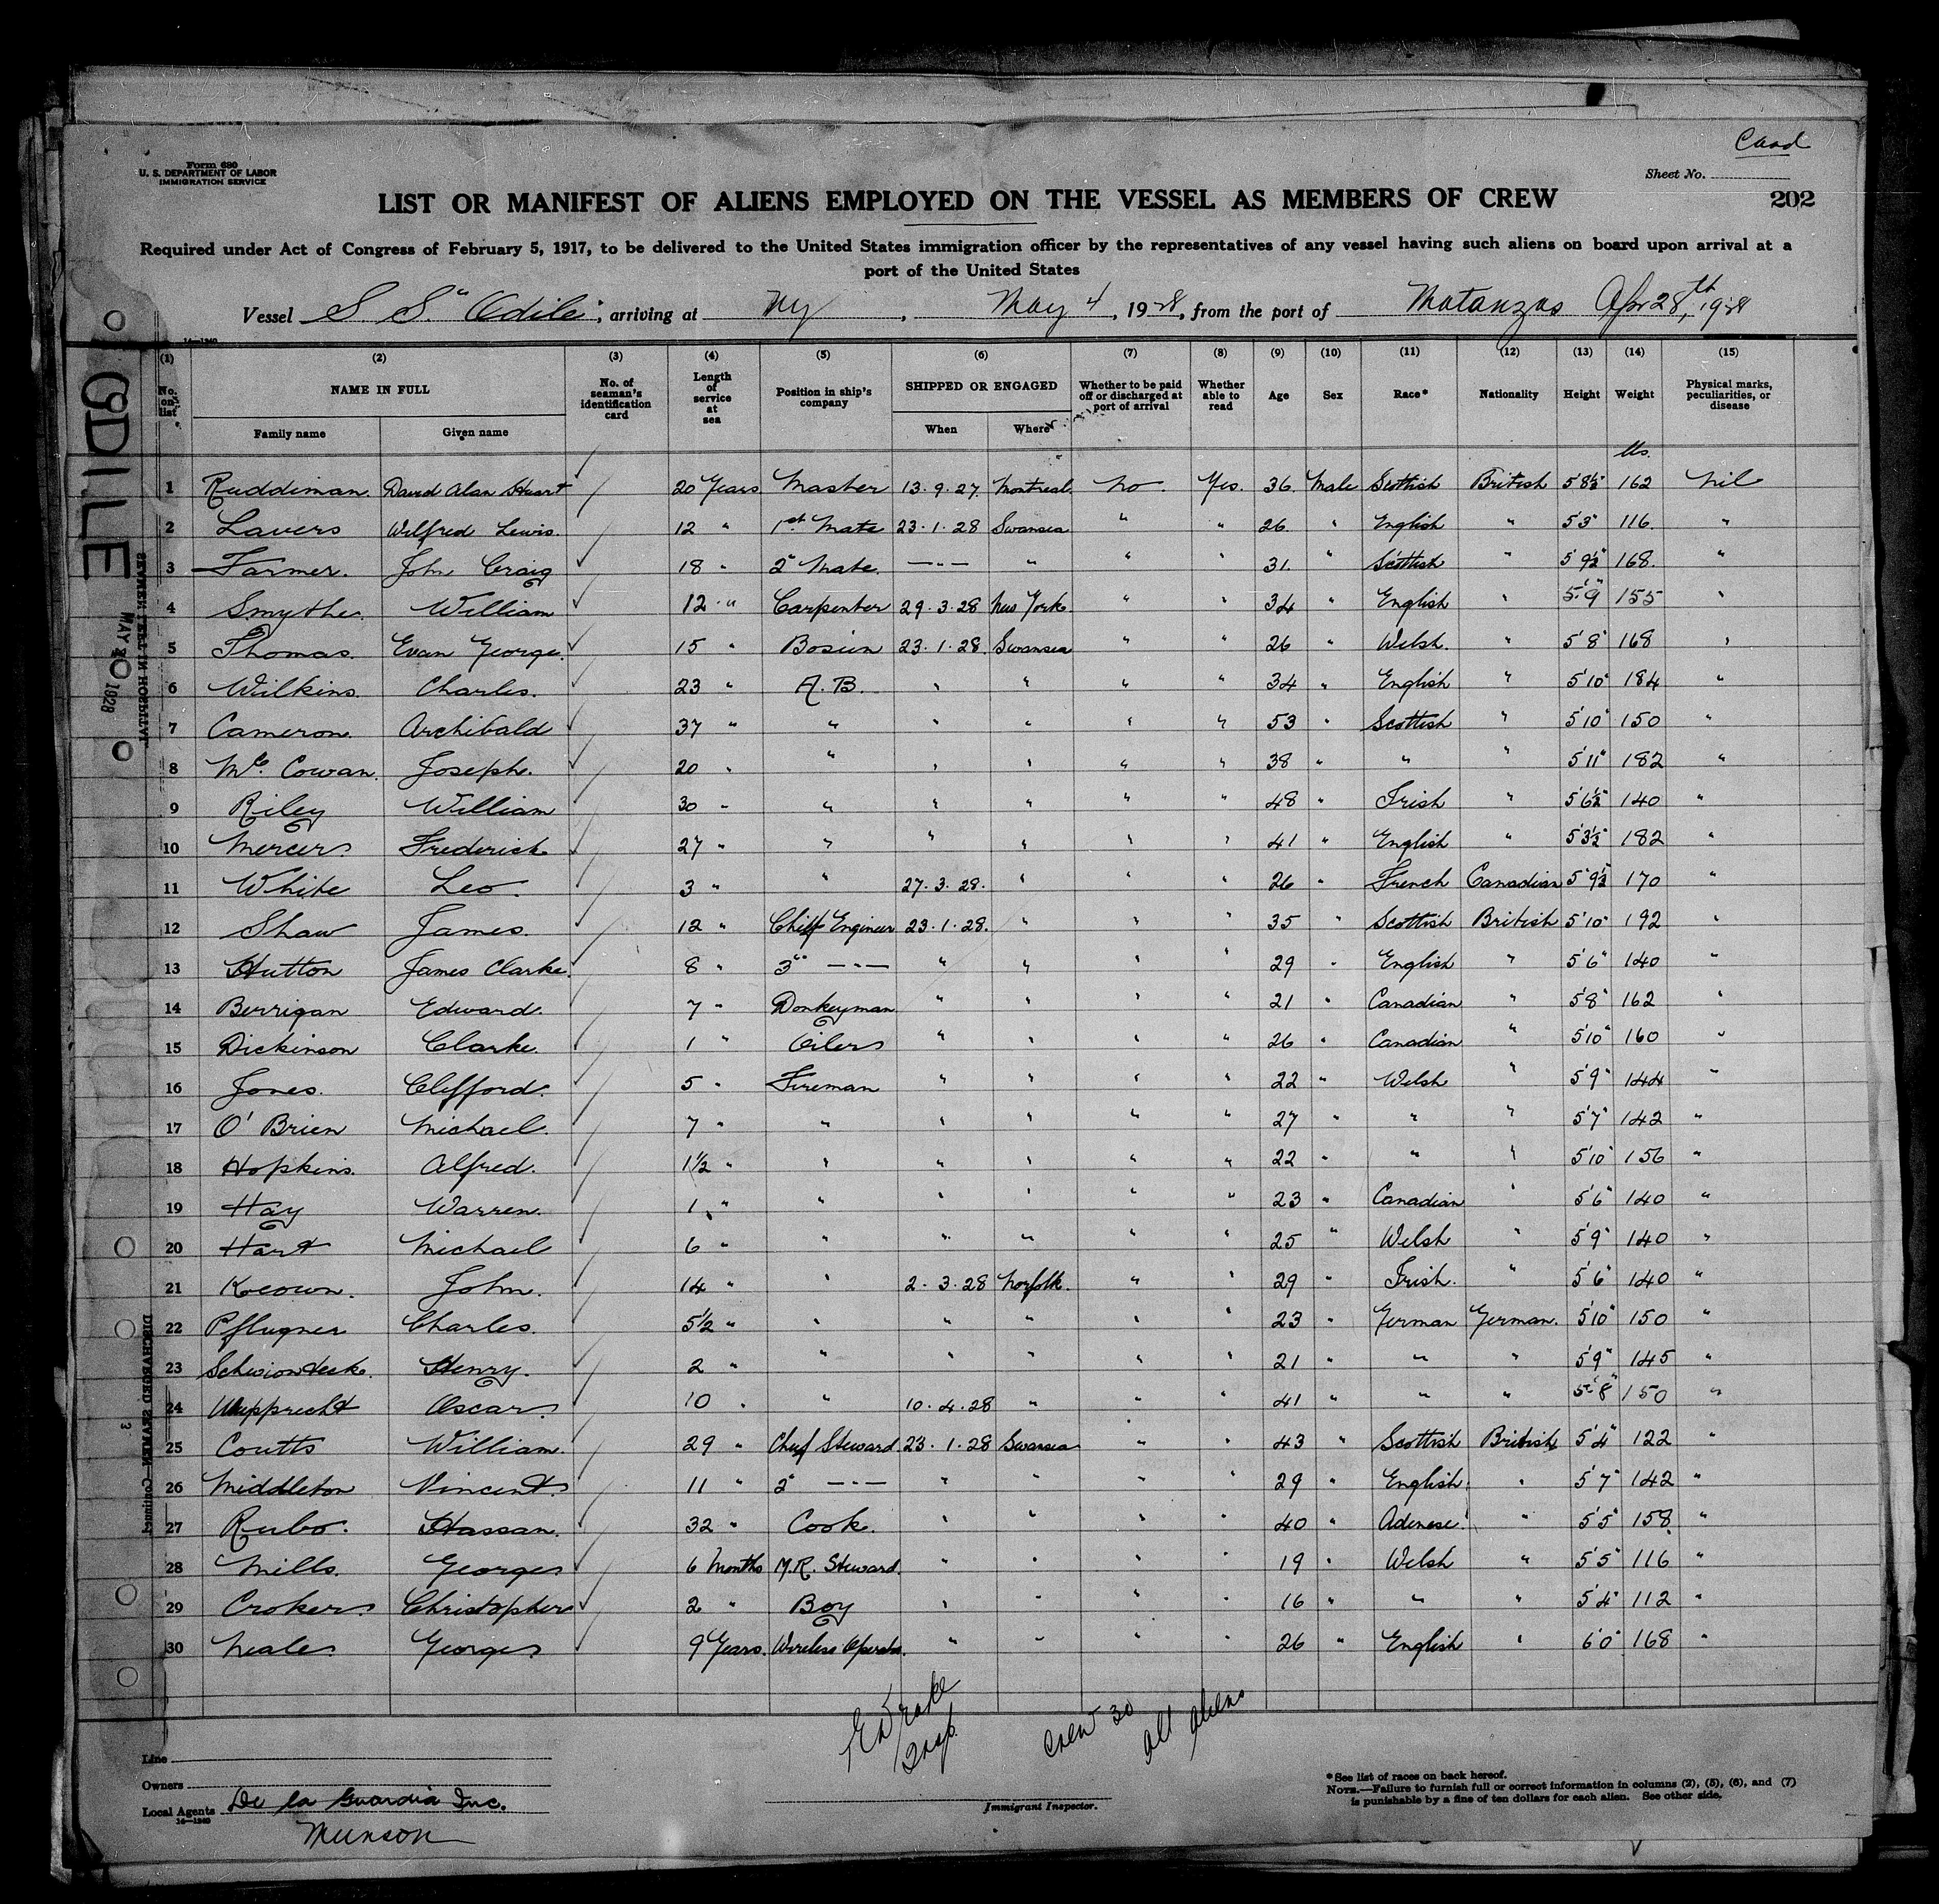 Card
Form 680
U. S. DEPARTMENT OF LABOR
IMMIGRATION SERVICE
Sheet No.
202
LIST OR MANIFEST OF ALIENS EMPLOYED ON THE VESSEL AS MEMBERS OF CREW
Required under Act of Congress of February 5, 1917, to be delivered to the United States immigration officer by the representatives of any vessel having such aliens on board upon arrival at a
port of the United States
Vessel S S "Odile", arriving at NY, May 4, 1928, from the port of Matanzas Apr 28th, 1928
(1) (2) (3) (4) (5) (6) (7) (8) (9) (10) (11) (12) (13) (14) (15)
No. on list NAME IN FULL No. of seaman's identification card Length of service at sea Position in ship's company SHIPPED OR ENGAGED Whether to be paid off or discharged at port of arrival Whether able to read Age Sex Race* Nationality Height Weight Physical marks, peculiarities, or disease
Family name Given name When Where
lbs.
1 Ruddiman. David Alan Stuart 20 Years Master 13.9.27. Montreal. No. Yes. 36. Male Scottish British 5'8½" 162 Nil
2 Lavers Wilfred Lewis. 12 " 1st Mate 23.1.28 Swansea " " 26. " English " 5'3" 116. "
3 Farmer. John Craig 18 " 2" Mate. —"— " " " 31. " Scottish " 5'9½" 168. "
4 Smythe. William 12 " Carpenter 29.3.28 New York " " 34 " English " 5'9" 155 "
5 Thomas. Evan George. 15 " Bosun 23.1.28. Swansea " " 26 " Welsh. " 5'8" 168 "
6 Wilkins. Charles. 23 " A.B. " " " " 34 " English " 5'10" 184 "
7 Cameron. Archibald 37 " " " " " " 53 " Scottish " 5'10" 150 "
8 Mc. Cowan. Joseph. 20 " " " " " " 38 " " " 5'11" 182 "
9 Riley William 30 " " " " " " 48 " Irish " 5'6½" 140 "
10 Mercer. Frederick 27 " " " " " " 41 " English " 5'3½" 182 "
11 White Leo 3 " " 27.3.28. " " " 26 " French Canadian 5'9½" 170 "
12 Shaw James. 12 " Chief Engineer 23.1.28. " " " 35 " Scottish British 5'10" 192 "
13 Hutton James Clarke. 8 " 3" —"— " " " " 29 " English " 5'6" 140 "
14 Berrigan Edward. 7 " Donkeyman " " " " 21 " Canadian " 5'8" 162 "
15 Dickinson Clarke. 1 " Oiler " " " " 26 " Canadian " 5'10" 160 "
16 Jones. Clifford. 5 " Fireman " " " " 22 " Welsh " 5'9" 144 "
17 O'Brien Michael. 7 " " " " " " 27 " " " 5'7" 142 "
18 Hopkins. Alfred. 1½ " " " " " " 22 " " " 5'10" 156 "
19 Hay Warren. 1 " " " " " " 23 " Canadian " 5'6" 140 "
20 Hart Michael 6 " " " " " " 25 " Welsh " 5'9" 140 "
21 Keown. John. 14 " " 2.3.28 Norfolk. " " 29 " Irish. " 5'6" 140 "
22 Pflugner Charles. 5½ " " " " " " 23 " German German. 5'10" 150 "
23 Henry. 2 " " " " " " 21 " " " 5'9" 145 "
24 Oscar. 10 " " 10.4.28 " " " 41 " " " 5'8" 150 "
25 Coutts William. 29 " Chief Steward. 23.1.28 Swansea " " 43 " Scottish British 5'4" 122 "
26 Middleton Vincent. 11 " 2" —"— " " " " 29 " English. " 5'7" 142 "
27 Rubo. Hassan. 32 " Cook. " " " " 40 " Adenese. " 5'5" 158 "
28 Mills. George 6 Months M.R. Steward. " " " " 19 " Welsh " 5'5" 116 "
29 Croker. Christopher 2 " Boy " " " " 16 " " " 5'4" 112 "
30 Neale George 9 Years. Wireless Operator. " " " " 26 " English " 6'0" 168 "
ODILE
SEVENTEEN IN HOSPITAL
MAY 1928
DISCHARGED SEAMEN—Continued
3
EDrake
Insp.
Crew 30
all aliens
Line
Owners
Local Agents De la Guardia Inc.
16—1240
Munson
Immigrant Inspector.
*See list of races on back hereof.
NOTE.—Failure to furnish full or correct information in columns (2), (5), (6), and (7)
is punishable by a fine of ten dollars for each alien. See other side.